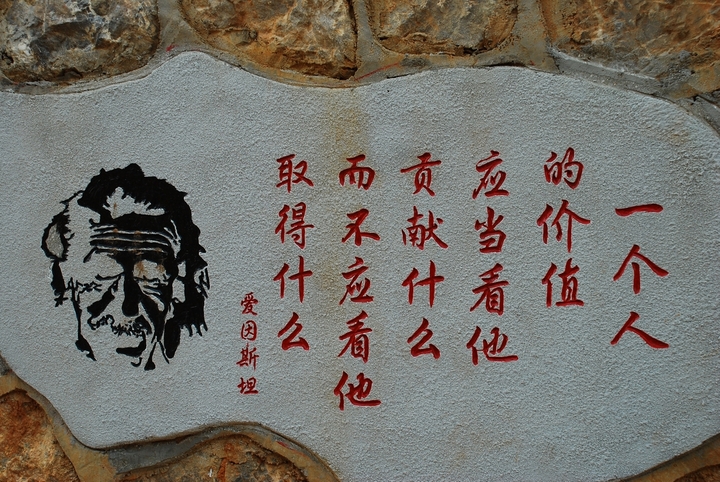 一个人
的价值
应当看他
贡献什么
而不应看他
取得什么
爱因斯坦